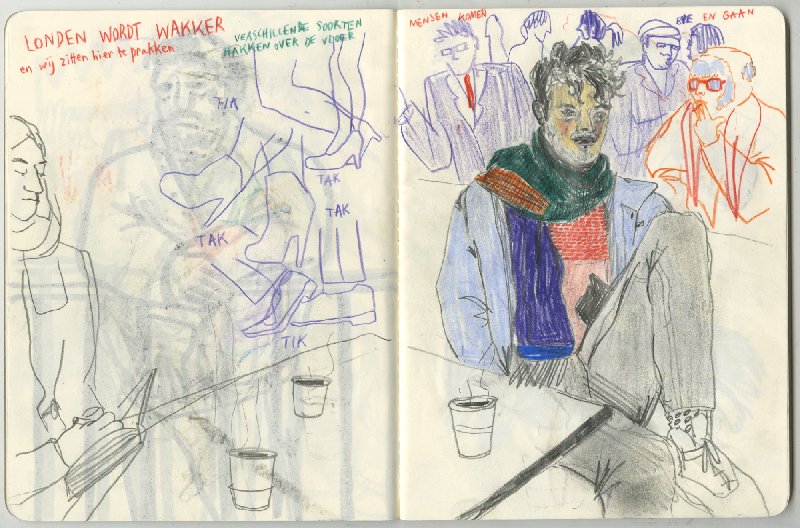 LONDEN WORDT WAKKER
en wij zitten hier te prakken
VERSCHILLENDE SOORTEN
HAKKEN OVER DE VLOER
TIK
TAK
TAK
TAK
TIK
MENSEN KOMEN
EN GAAN